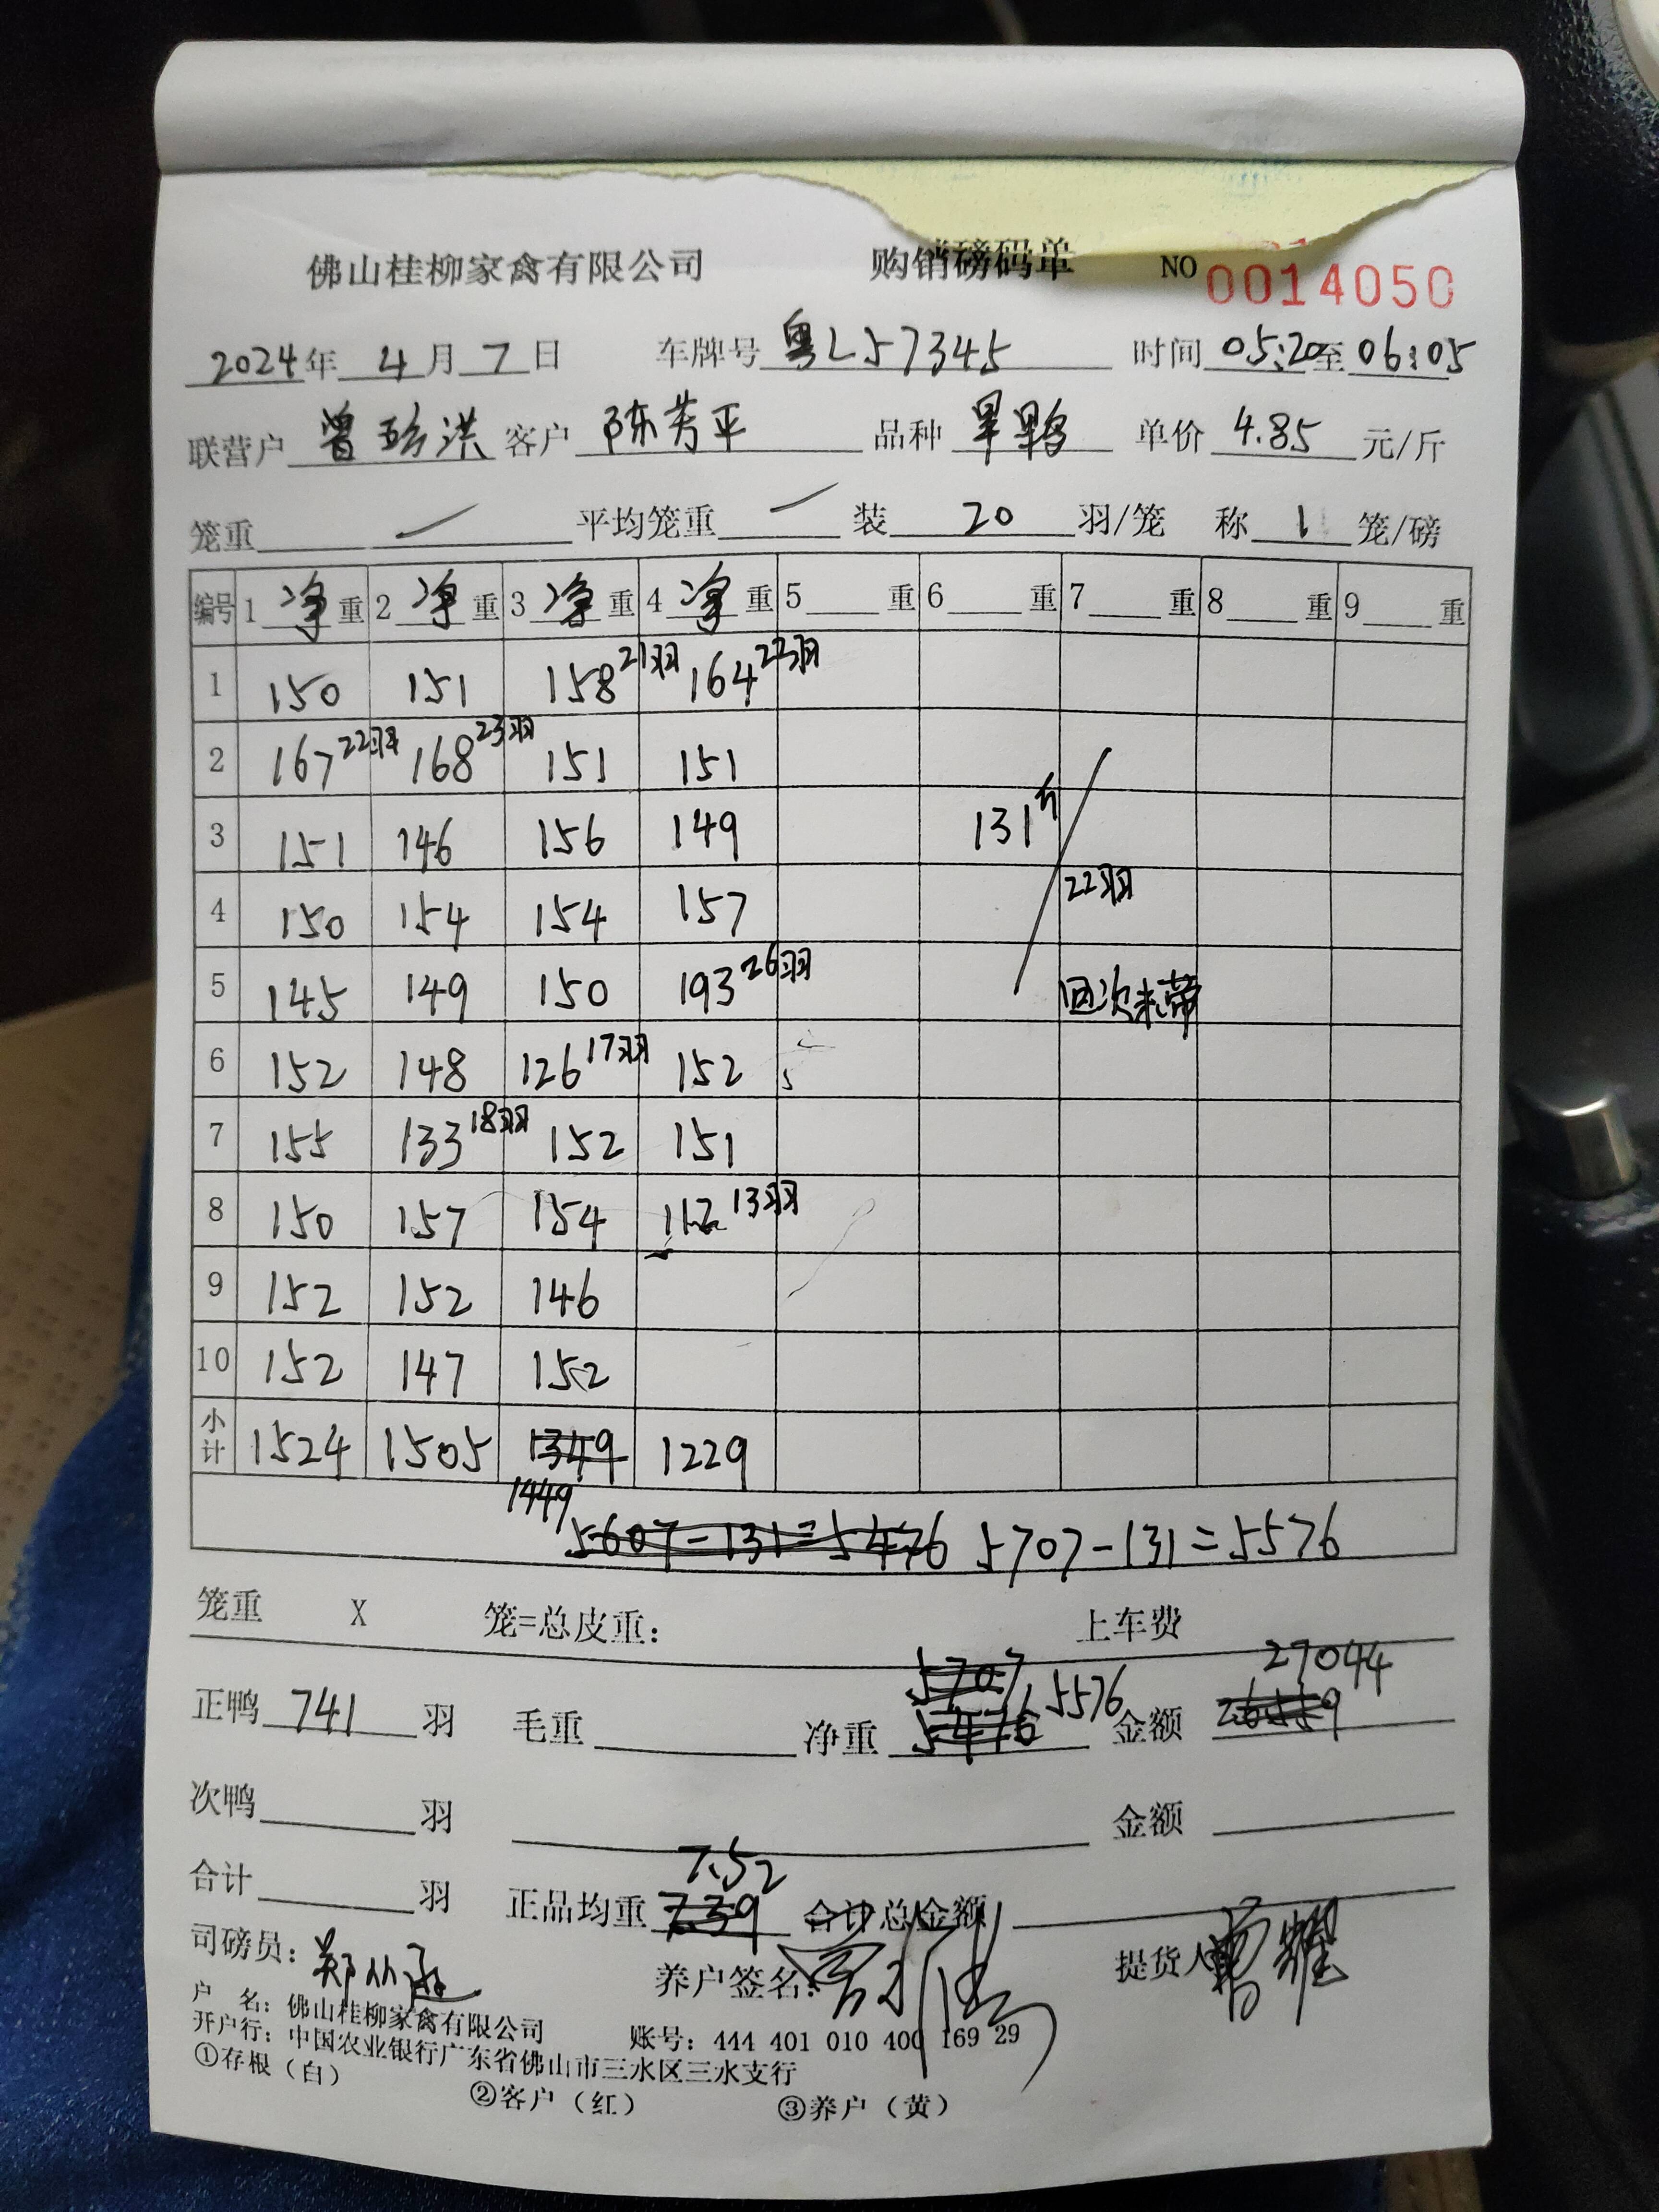 佛山桂柳家禽有限公司 购销磅码单 NO 0014050
2024年 4月 7日 车牌号 粤L57345 时间 05:20至06:05
联营户 曾 洪 客户 陈芳平 品种 单价 4.85 元/斤
笼重 平均笼重 装 20 羽/笼 称 1 笼/磅
编号 1 净 重 2 净 重 3 净 重 4 净 重 5 重 6 重 7 重 8 重 9 重
1 150 151 158 21羽 164 22羽
2 167 22羽 168 23羽 151 151
3 151 146 156 149 131斤
4 150 154 154 157 22羽
5 145 149 150 193 26羽 回次未带
6 152 148 126 17羽 152
7 155 133 18羽 152 151
8 150 157 154 112 13羽
9 152 152 146
10 152 147 152
小计 1524 1505 1349 1229
1449
5607-131=5476 5707-131=5576
笼重 X 笼=总皮重: 上车费
5707 27044
正鸭 741 羽 毛重 净重 5476 5576 金额 26559
次鸭 羽 金额
7.52
合计 羽 正品均重 7.39 合计总金额
司磅员: 郑 养户签名: 提货人 曾耀
户 名: 佛山桂柳家禽有限公司
开户行: 中国农业银行广东省佛山市三水区三水支行 账号: 444 401 010 400 169 29
①存根(白) ②客户(红) ③养户(黄)